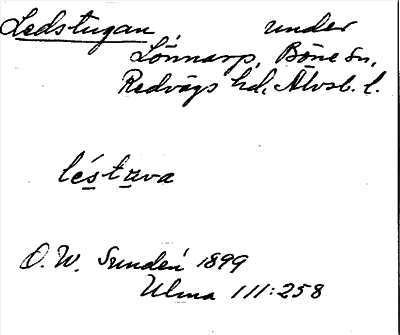 Ledstugan under
Lönnarp, Böne sn,
Redvägs hd, Älvsb. l.
léstava
O. W. Sundén 1899
Ulma 111:258